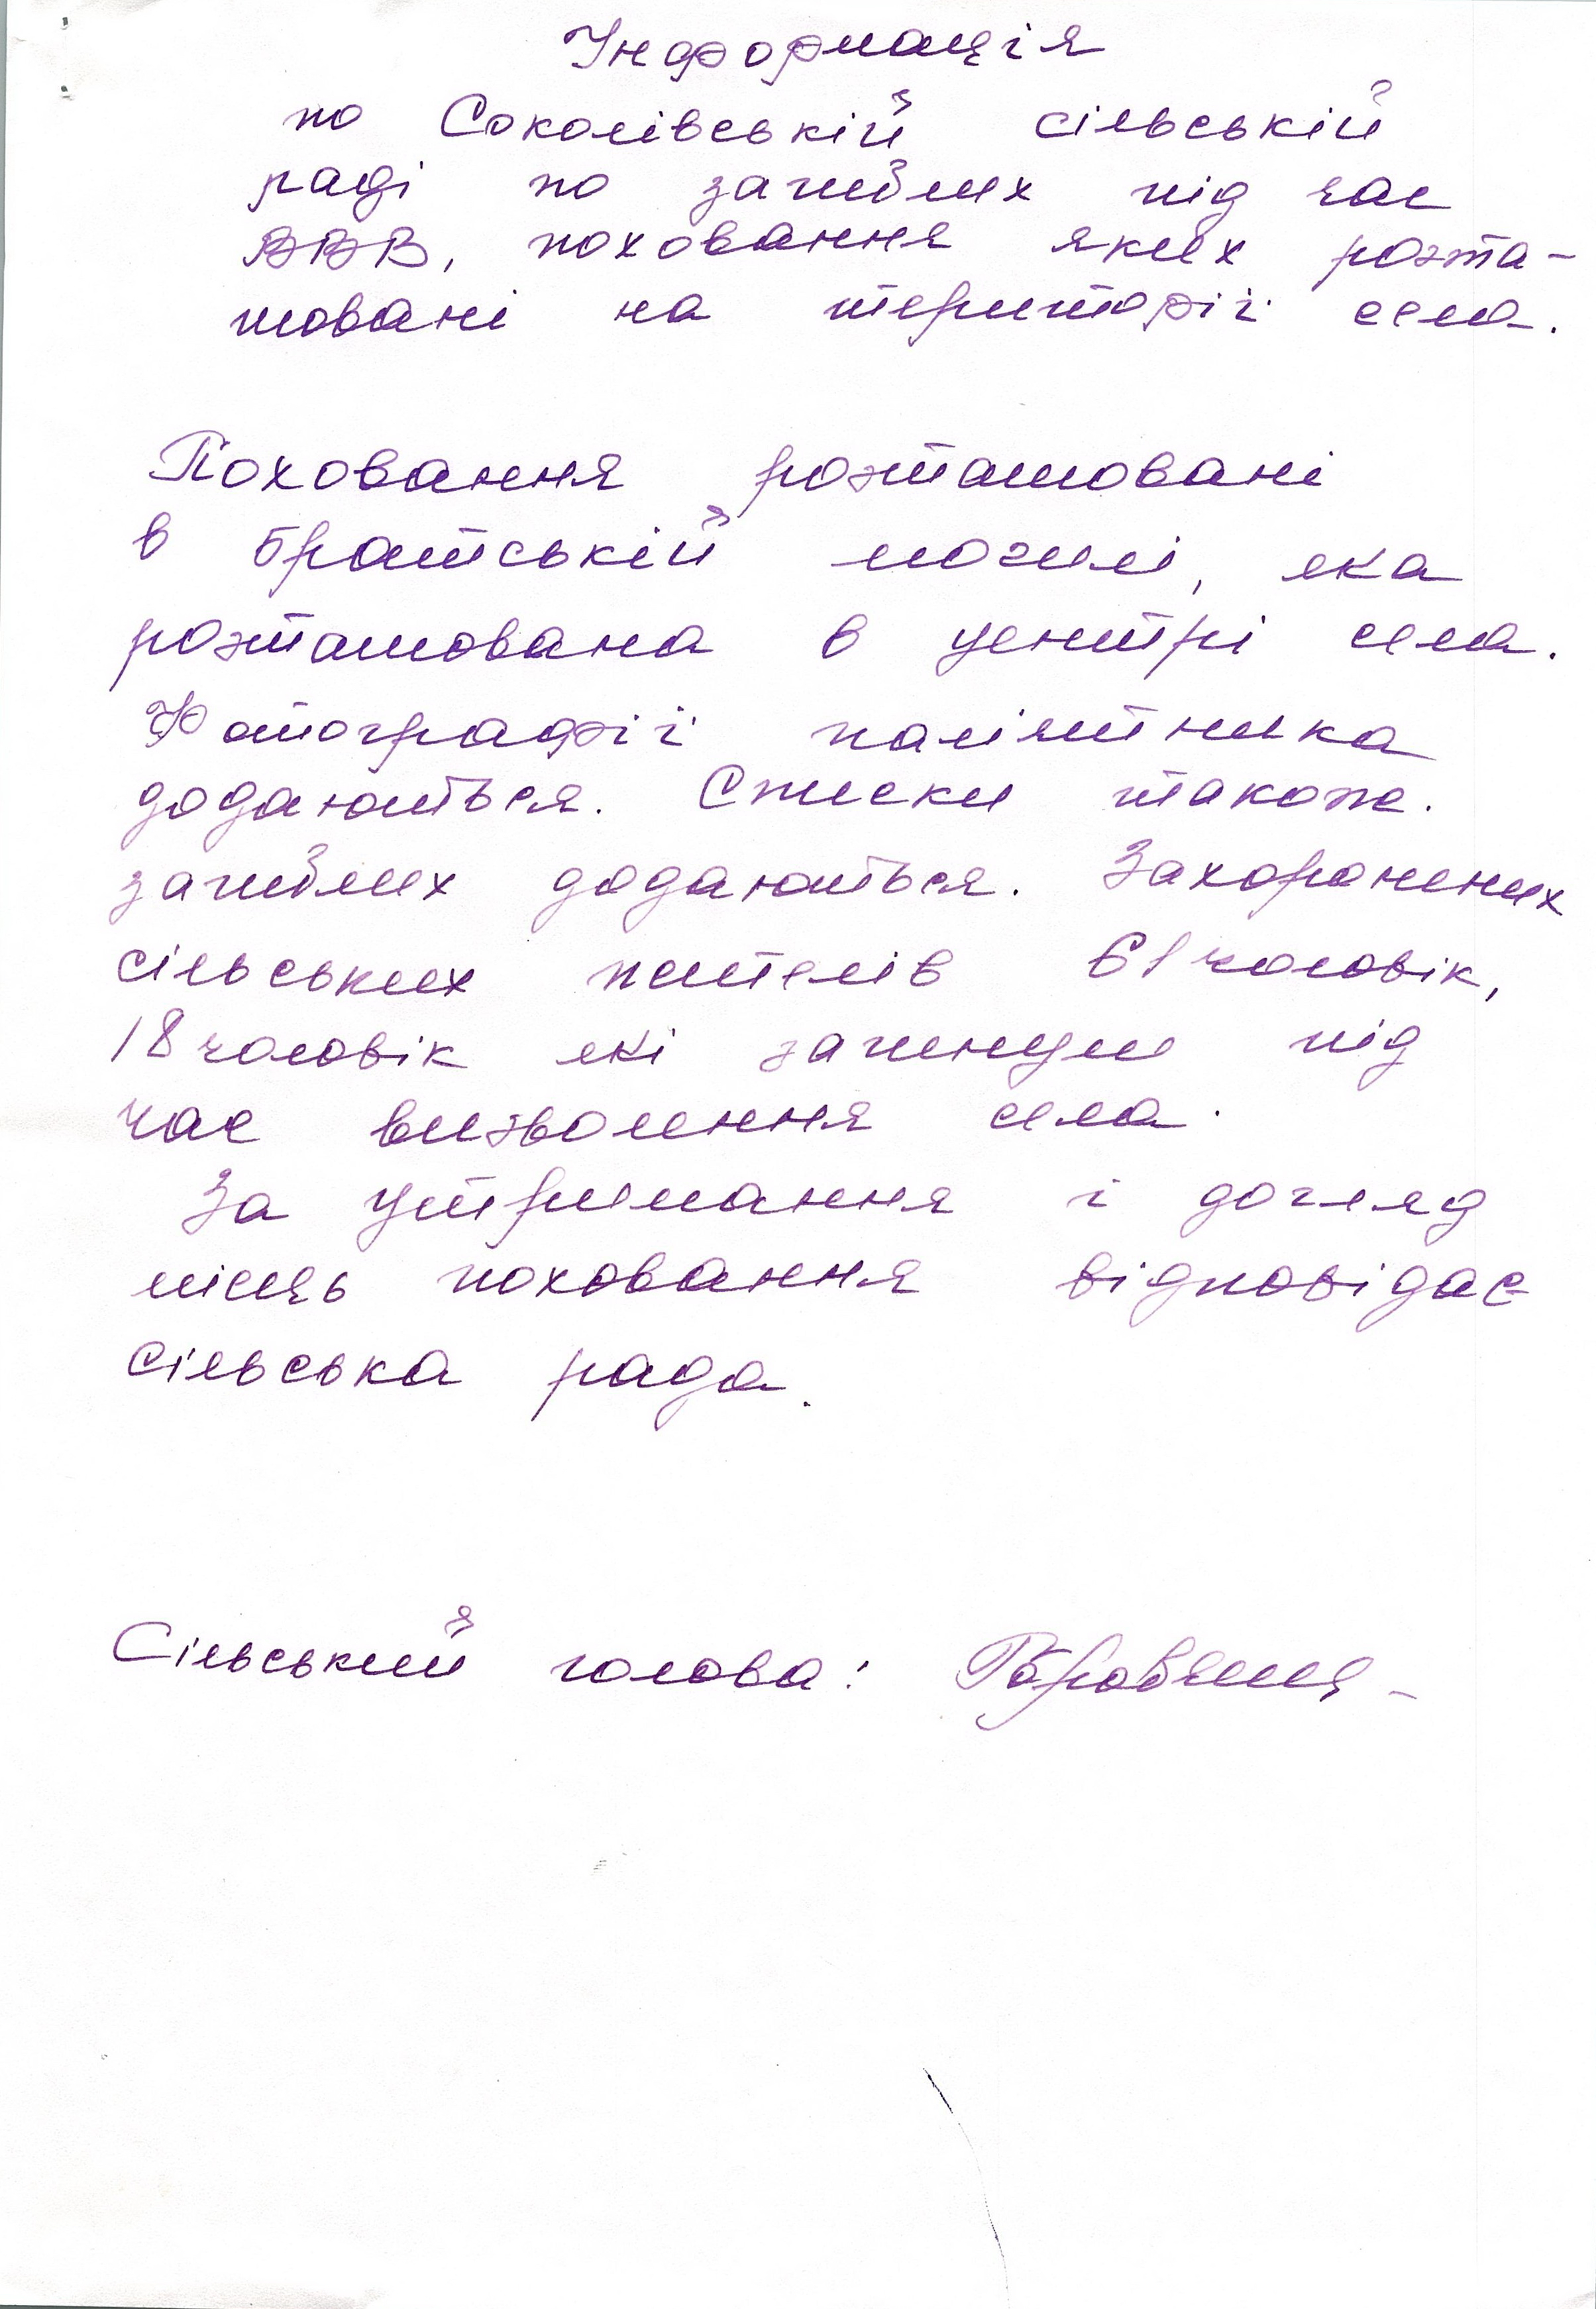 Інформація
по Соколівській сільській
раді по загиблих під час
ВВВ, поховання яких розта-
шовані на території села.
Поховання розташовані
в братській могилі, яка
розташована в центрі села.
Фотографії памʼятника
додаються. Списки також.
загиблих додаються. Захоронених
сільських жителів 61 чоловік,
18 чоловік які загинули під
час визволення села.
За утримання і догляд
місць поховання відповідає
сільська рада.
Сільський голова: